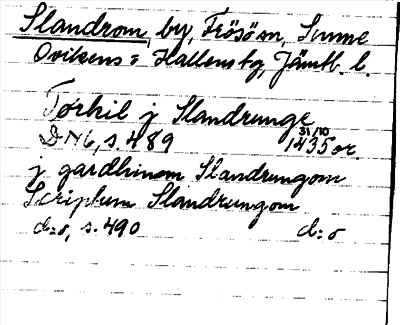 Slandrom, by, Frösö sn, Sunne
Ovikens o Hallens tg, Jämtl. l.
Torkil j Slandrunge
DN 6, s. 489 31/10 1435 or.
j gardhinom Slandrungom
Scriptum Slandrungom
d:o, s. 490 d:o